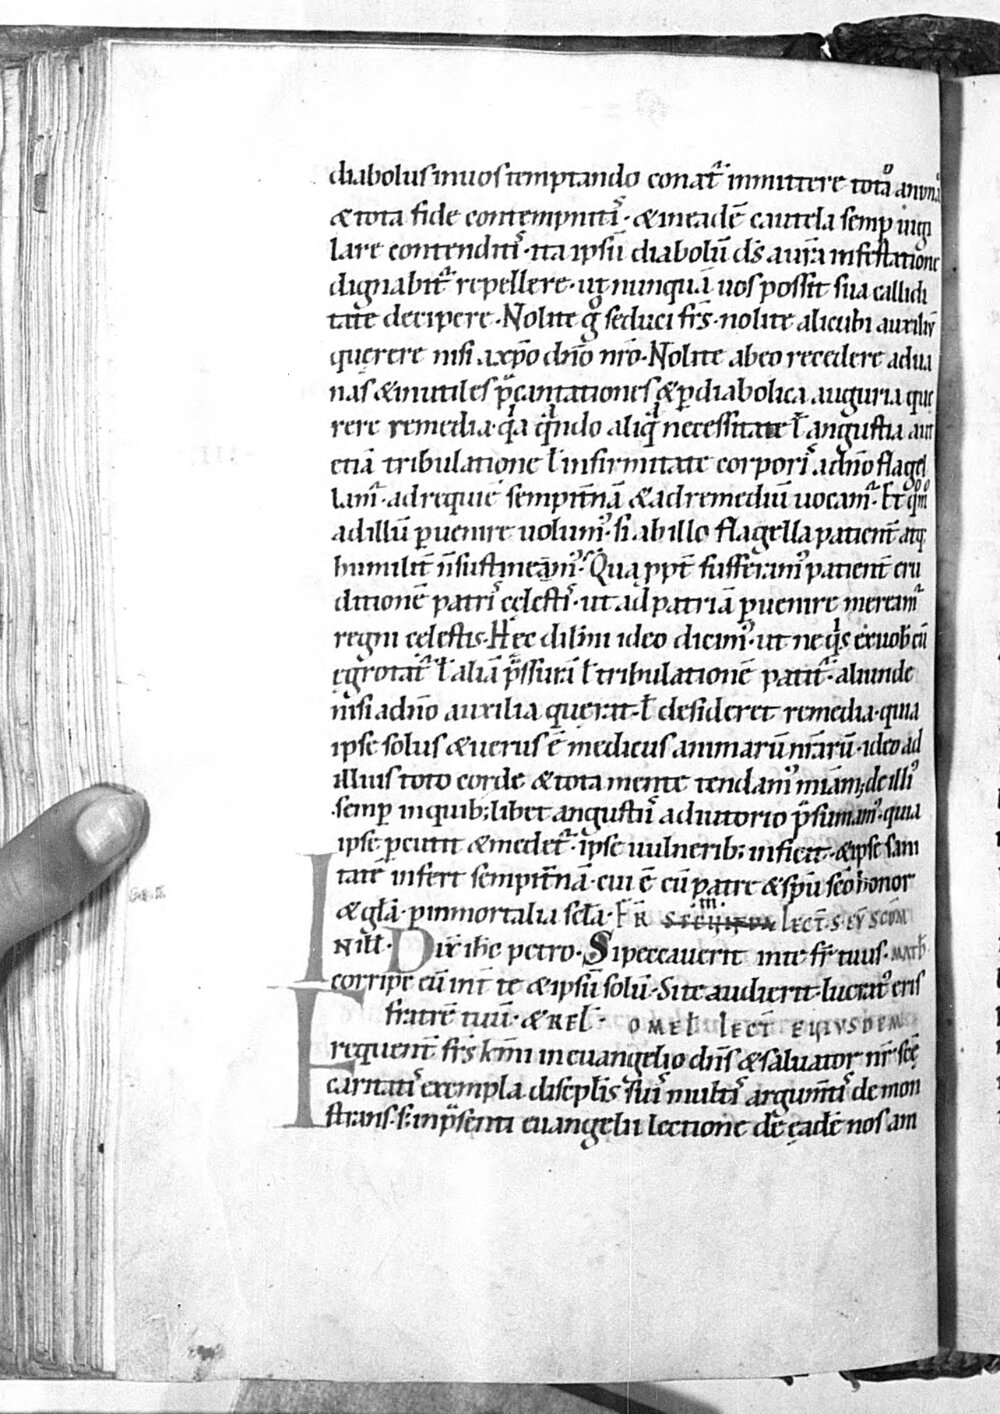 diabolus in uos temptando conat᷑ inmittere tota anima
& tota fide contempnitis · & in eadē cautela semp uigi
lare contenditis · ita ipsū diabolū ds̄ a ur̄a infestatione
dignabit᷑ repellere · ut nunquā uos possit sua callidi
tate decipere · Nolite g̊ seduci frs̄ · nolite alicubi auxiliū
querere nisi a xp̄o dn̄o nr̄o · Nolite ab eo recedere ad ua
nas & inutiles p̄cantationes & p diabolica auguria que
rere remedia · q̍a q̍ndo aliq̍ necessitate ł angustia aut
etiā tribulatione ł infirmitate corporis a dn̄o flagel
lam᷑ · ad requiē sempit̄nā & ad remediū uocam᷑ · Et q̊m̊
ad illū puenire uolum᷒ · si ab illo flagella patient̄ atq;
humilit̄ n̄ sustineam᷒ · Qua ppt̄ sufferam᷒ patient̄ eru
ditionē patris cęlestis · ut ad patriā puenire meream᷑
regni cęlestis · Hęc dil̄mi ideo dicim᷒ · ut ne q̍s ex uob̄ cū
ęgrotat᷑ ł aliā p̄ssurā ł tribulationē patit᷑ · aliunde
nisi a dn̄o auxilia querat · ł desideret remedia · quia
ipse solus & uerus ē medicus animarū nr̄arū · ideo ad
illius toto corde & tota mente tendam᷒ mīam; de illi᷒
semp in quib; libet angustiis adiutorio p̄sumam᷒ · quia
ipse pcutit & medet᷑ · ipse uulnerib; inficit · & ipse sani
tatē infert sempit̄nā · cui ē cū patre & sp̄u sc̄o honor
& gl̄a · p inmortalia sc̄la · FR LECT̄ · S · EV̄ SCDM
IN ill̄ · Dix̄ ih̄c petro · Si peccauerit in te fr̄ tuus · MATH̄
corripe eū int̄ te & ipsū solū · Si te audierit · lucrat᷒ eris
fratrē tuū · & REL̄ · OMEL̄ LECT̄ EIUSDEM
Frequent̄ frs̄ km̄i in euangelio dn̄s & saluator nr̄ sc̄ę
caritatis exempla discip̄lis suis multis argum̄tis demon
strans · s; in p̄senti euangelii lectione de eadē nos am